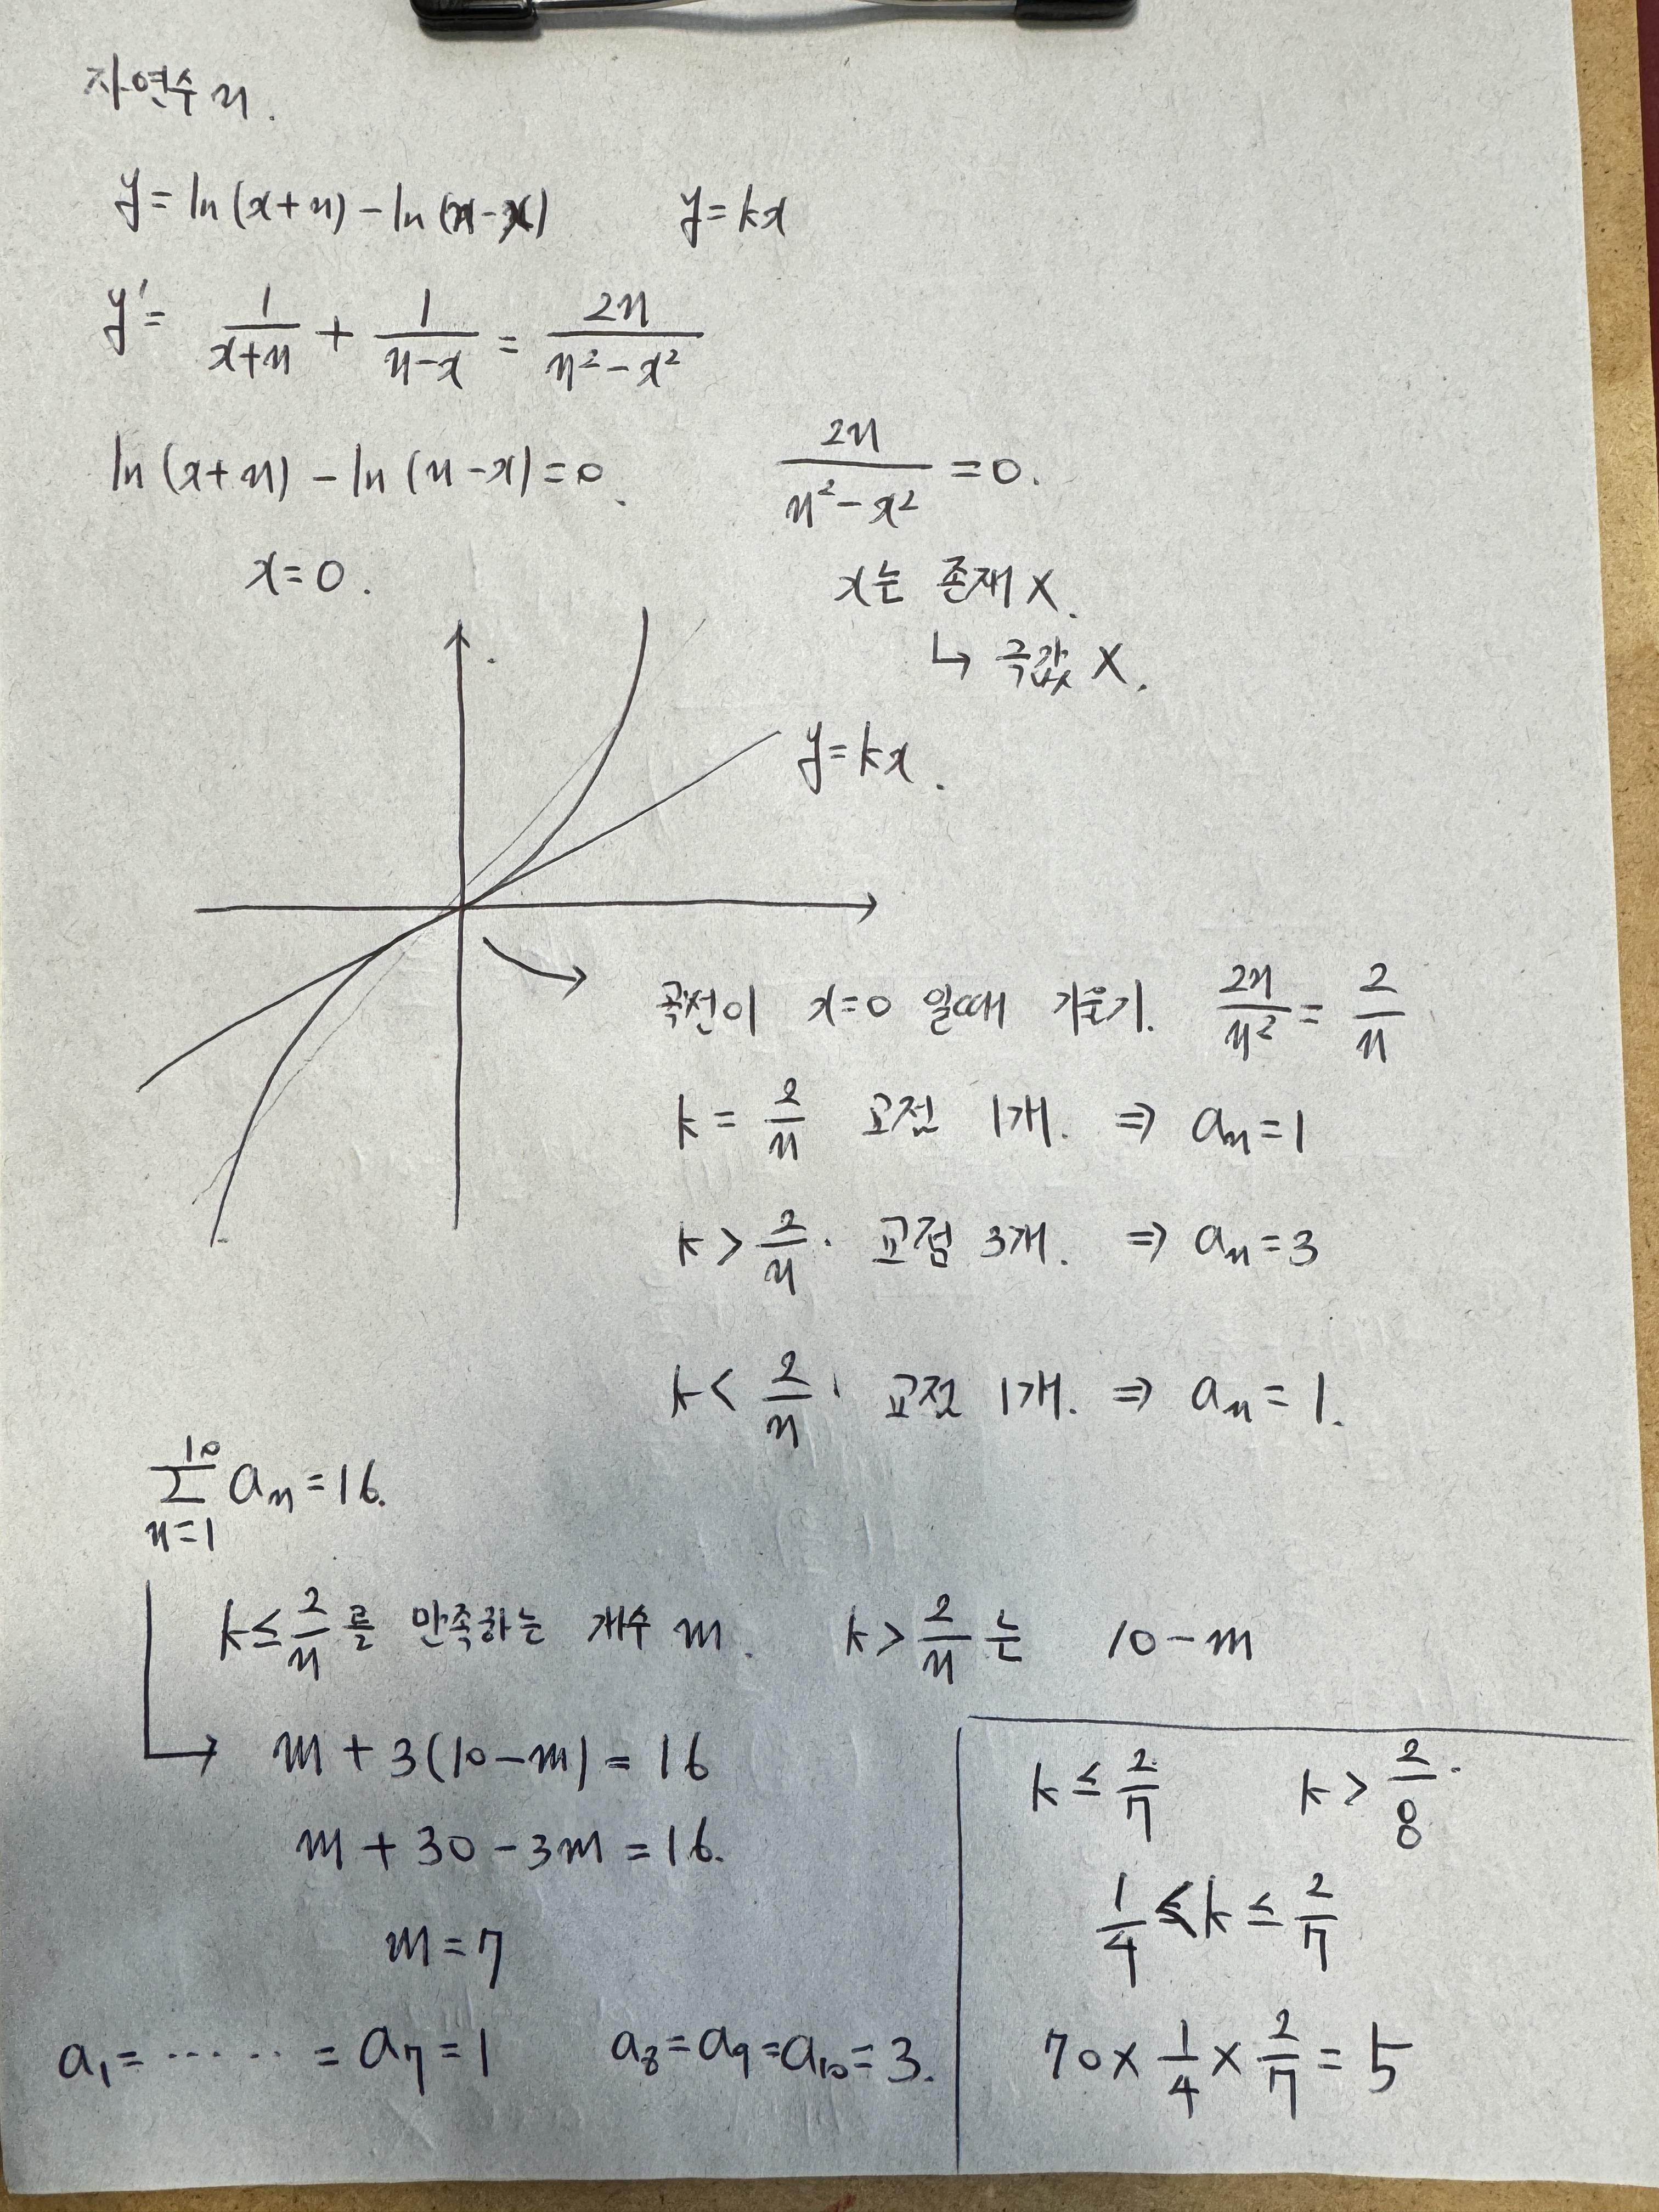 자연수 n.
y = ln(x+n) - ln(n-x)    y = kx
y' = 1/(x+n) + 1/(n-x) = 2n/(n²-x²)
ln(x+n) - ln(n-x) = 0.    2n/(n²-x²) = 0.
x = 0.    x는 존재 X.
↳ 극값 X.
y = kx.
곡선이 x=0 일때 기울기. 2n/n² = 2/n
k = 2/n 교점 1개. ⇒ aₙ = 1
k > 2/n. 교점 3개. ⇒ aₙ = 3
k < 2/n. 교점 1개. ⇒ aₙ = 1.
∑_{n=1}^{10} aₙ = 16.
k ≤ 2/n 를 만족하는 개수 m.    k > 2/n 는 10-m
m + 3(10-m) = 16
m + 30 - 3m = 16.
m = 7
a₁ = ⋯⋯ = a₇ = 1    a₈ = a₉ = a₁₀ = 3.
k ≤ 2/7    k > 2/8.
1/4 ≤ k ≤ 2/7
70 × 1/4 × 2/7 = 5